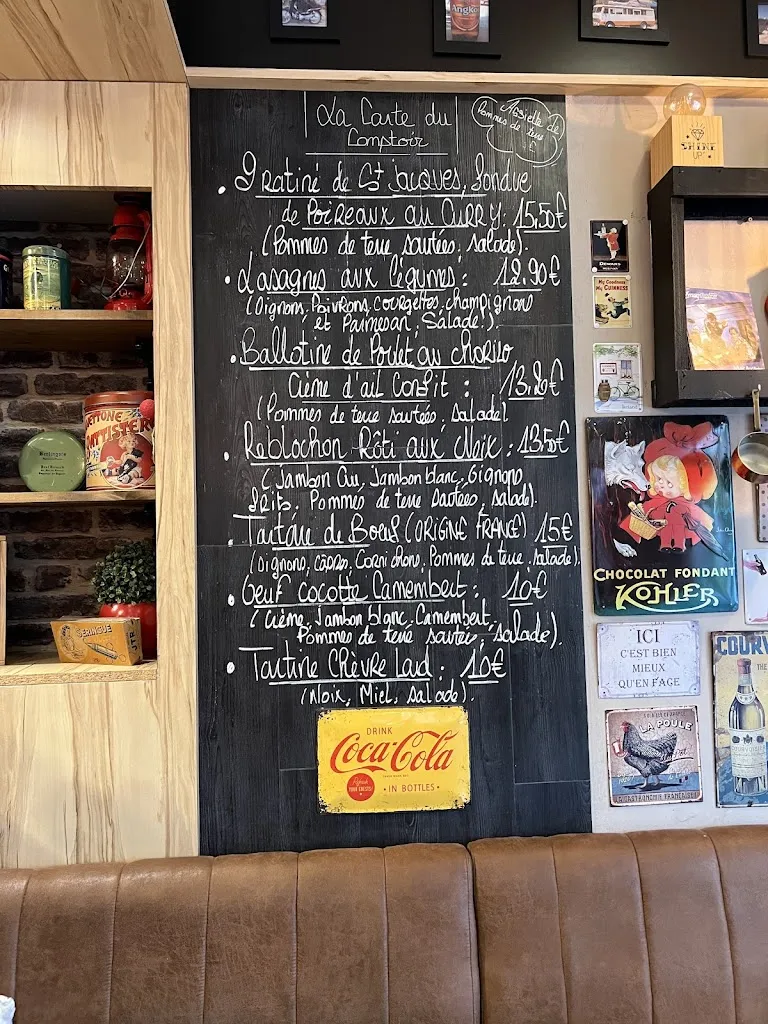 La Carte du
Comptoir
Assiette de
Pommes de terre
€
Gratiné de St Jacques, fondue
de Poireaux au Curry: 15,50€
(Pommes de terre sautées, salade).
Lasagnes aux légumes: 12.90€
(Oignons, Poivrons, courgettes, champignons
et Parmesan, Salade!).
Ballotine de Poulet au chorizo
Crème d'ail Confit :
(Pommes de terre sautées, salade)
Reblochon Rôti aux Noix: 13,50€
(Jambon Cru, Jambon blanc, Oignons
frits. Pommes de terre sautées, salade).
Tartare de Boeuf (ORIGINE FRANCE) 15€
(Oignons, câpres, Cornichons, Pommes de terre, salade).
Oeuf cocotte Camembert: 10€
(Crème, Jambon blanc, Camembert,
Pommes de terre sautées, salade).
Tartine Chèvre Lard: 10€
(Noix, Miel, salade).
DRINK
Coca-Cola
IN BOTTLES
SHINE
UP
My Goodness
My GUINNESS
CHOCOLAT FONDANT
KOHLER
ICI
C'EST BIEN
MIEUX
QU'EN FACE
LA POULE
LA GASTRONOMIE FRANÇAISE
COURV
THE
SERINGUE
JTR
Angkor